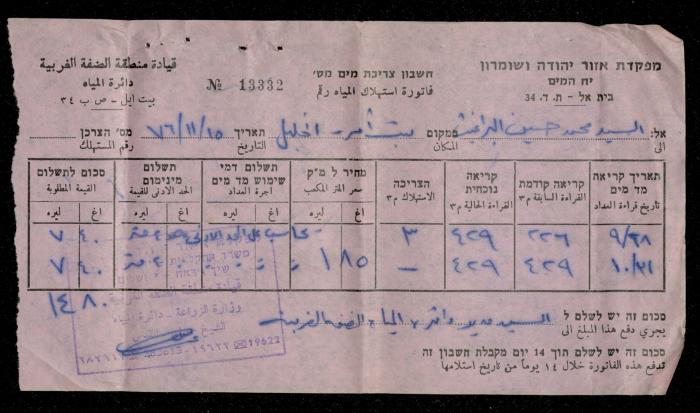 מפקדת אזור יהודה ושומרון
יח׳ המים
בית אל – ת. ד. 34
חשבון צריכת מים מס׳
فاتورة استهلاك المياه رقم
№ 13332
قيادة منطقة الضفة الغربية
دائرة المياه
بيت ايل – ص ب ٣٤
אל: السيد محمد حسين
الى
ממקום بيت أمر – الخليل
المكان
תאריך ٧٦/١١/١٥
التاريخ
מס׳ הצרכן
رقم المستهلك
תאריך קריאת מד מים
تاريخ قراءة العداد
קריאה קודמת
القراءة السابقة م٣
קריאה נוכחית
القراءة الحالية م٣
הצריכה
الاستهلاك م٣
מחיר ל מ״ק
سعر المتر المكعب
תשלום דמי שימוש מד מים
اجرة العداد
תשלום מינימום
الحد الادنى للقيمة
סכום לתשלום
القيمة المطلوبة
اغ ليره اغ ليره اغ ليره اغ ليره
٩/٢٨ ٤٢٩ ٣ يحاسب على الحد الادنى ٤٠ ٧
١٠/٣١ ٤٢٩ ٤٢٩ – ١٨٥ ٤٠ ٧
١٤ ٨٠
סכום זה יש לשלם ל السيد مدير دائرة المياه الضفة الغربية
يجري دفع هذا المبلغ الى
وزارة الزراعة – دائرة المياه
☎19622
סכום זה יש לשלם תוך 14 יום מקבלת חשבון זה
تدفع هذه الفاتورة خلال ١٤ يوما من تاريخ استلامها